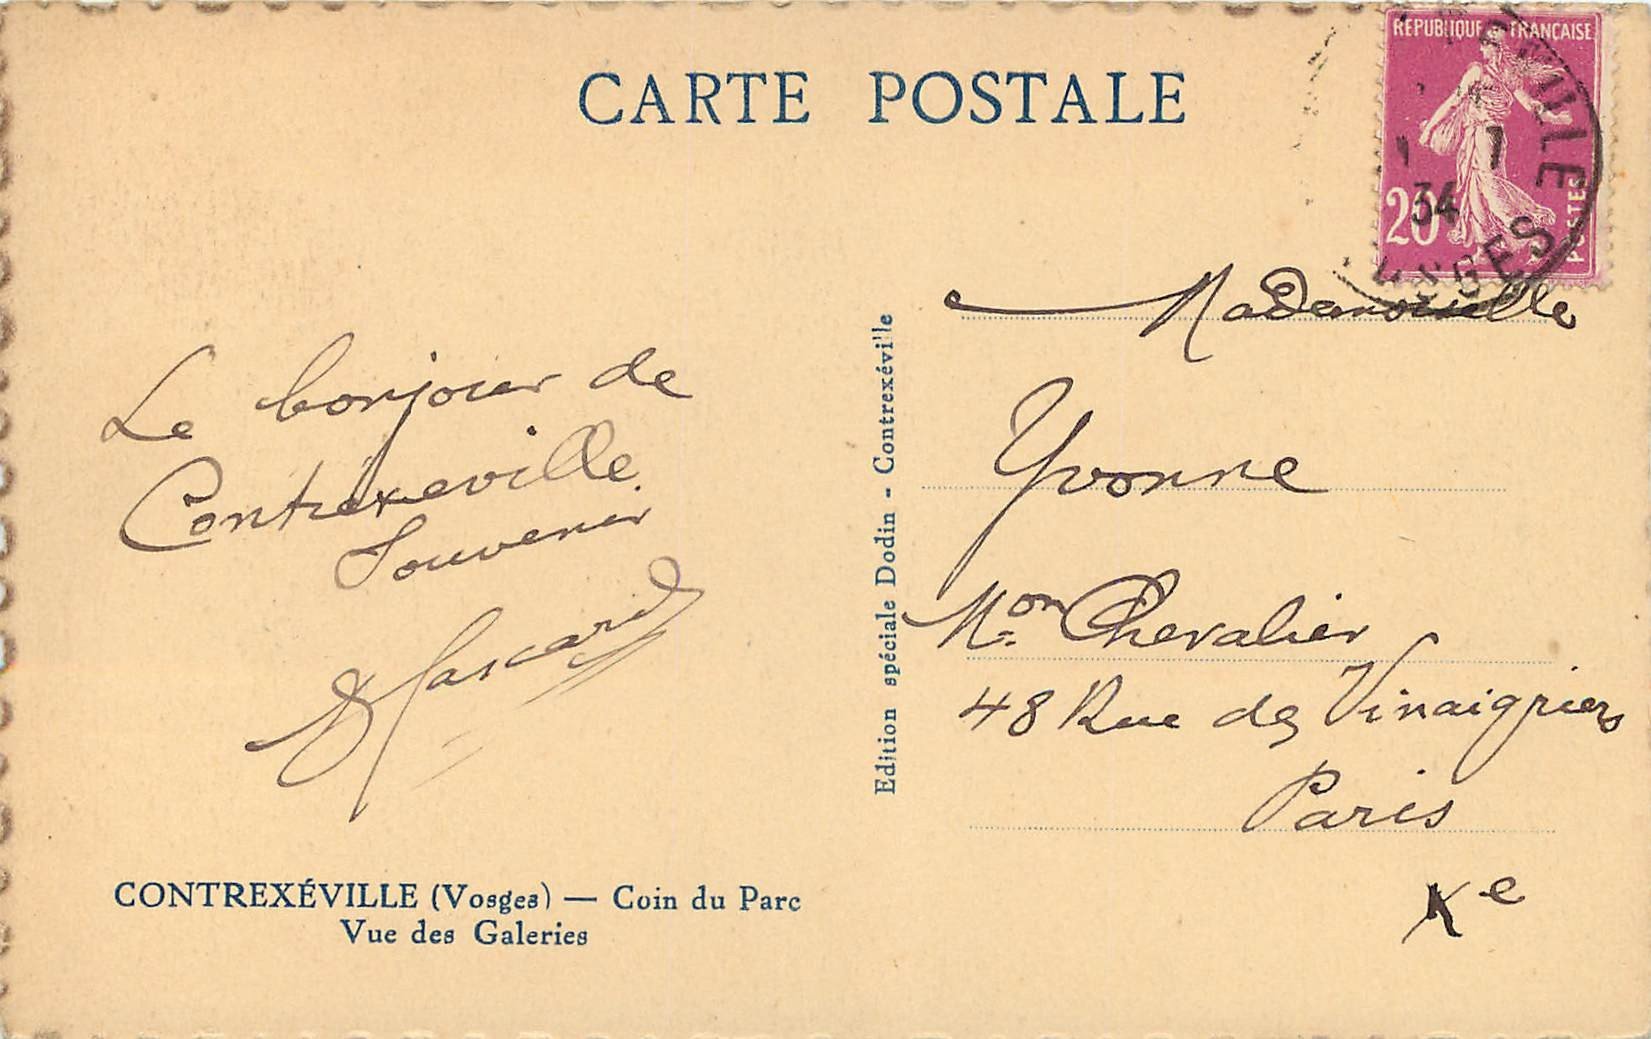 CARTE POSTALE
REPUBLIQUE FRANÇAISE
20
POSTES
VILLE
1
34
VOSGES
Le bonjour de
Contrexeville
Souvenir
Edition spéciale Dodin - Contrexéville
Mademoiselle
Yvonne
Mon Chevalier
48 Rue des Vinaigriers
Paris
Xe
CONTREXÉVILLE (Vosges) — Coin du Parc
Vue des Galeries